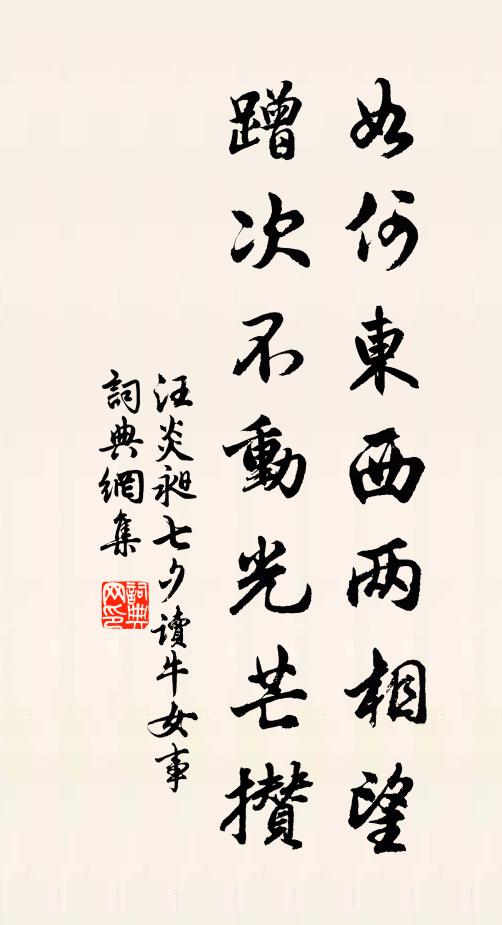 如何東西两相望
蹭次不動光芒攢
汪炎昶七夕讀牛女事
詞典網集
詞典网印